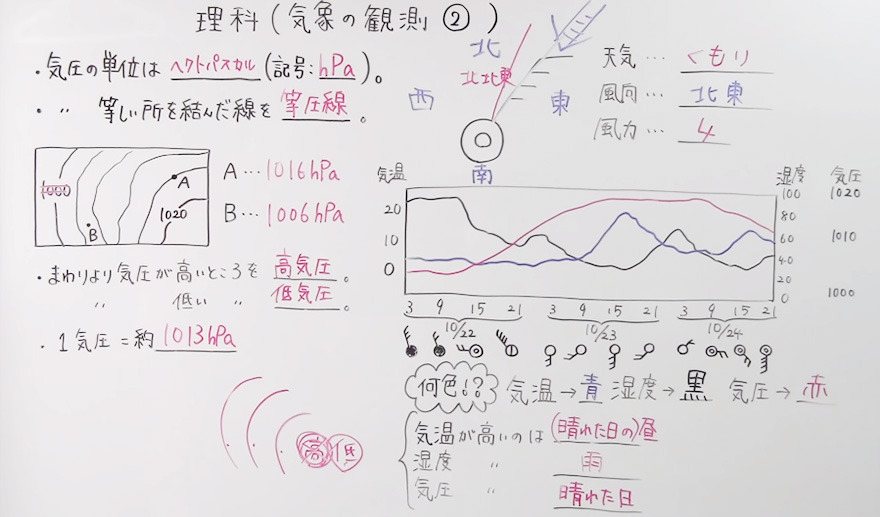 理科(気象の観測②)
・気圧の単位は ヘクトパスカル (記号: hPa)。
・ 〃 等しい所を結んだ線を 等圧線 。
1000
A
1020
B
A … 1016hPa
B … 1006hPa
・まわりより気圧が高いところを 高気圧 。
〃 低い 〃 低気圧 。
・1気圧=約 1013hPa
高 低
北
北北東
西 東
南
天気 … くもり
風向 … 北東
風力 … 4
気温 湿度 気圧
20
10
0
100
80
60
40
20
0
1020
1010
1000
3 9 15 21 3 9 15 21 3 9 15 21
10/22 10/23 10/24
何色!? 気温→青 湿度→黒 気圧→赤
気温が高いのは (晴れた日の)昼
湿度 〃 雨
気圧 〃 晴れた日